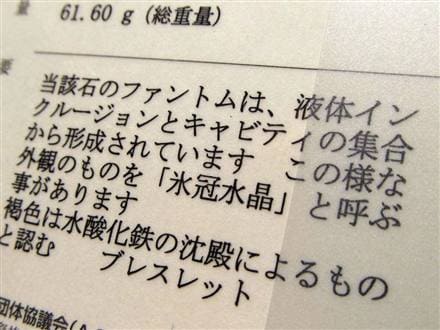 量 61.60 g (総重量)
要 当該石のファントムは、液体イン
クルージョンとキャビティの集合
から形成されています この様な
外観のものを「氷冠水晶」と呼ぶ
事があります
褐色は水酸化鉄の沈殿によるもの
と認む ブレスレット
団体協議会(A